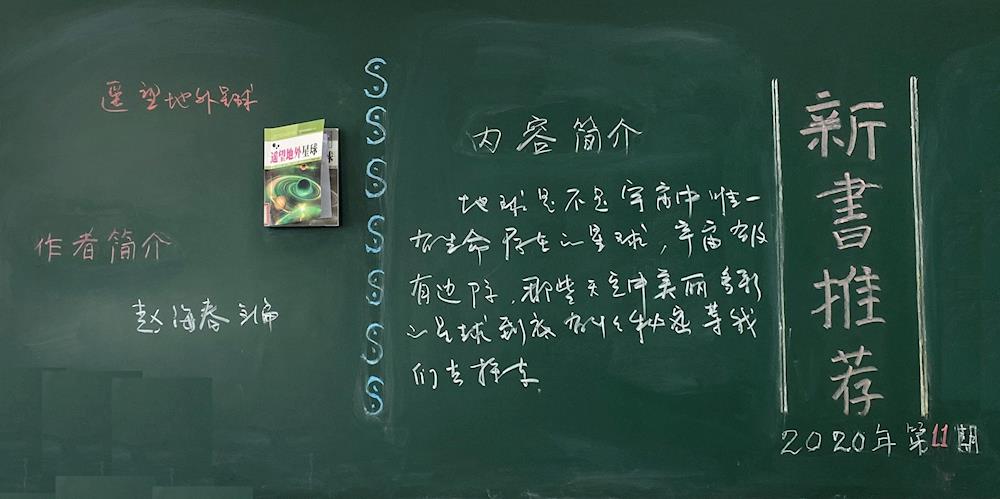 遥望地外星球
遥望地外星球
作者简介
赵海春主编
S
S
S
S
S
S
S
S
内容简介
地球是不是宇宙中惟一
有生命存在的星球，宇宙有没
有边际，那些天空中美丽多彩
的星球到底有什么秘密等我
们去探索
新
書
推
荐
2020年第11期